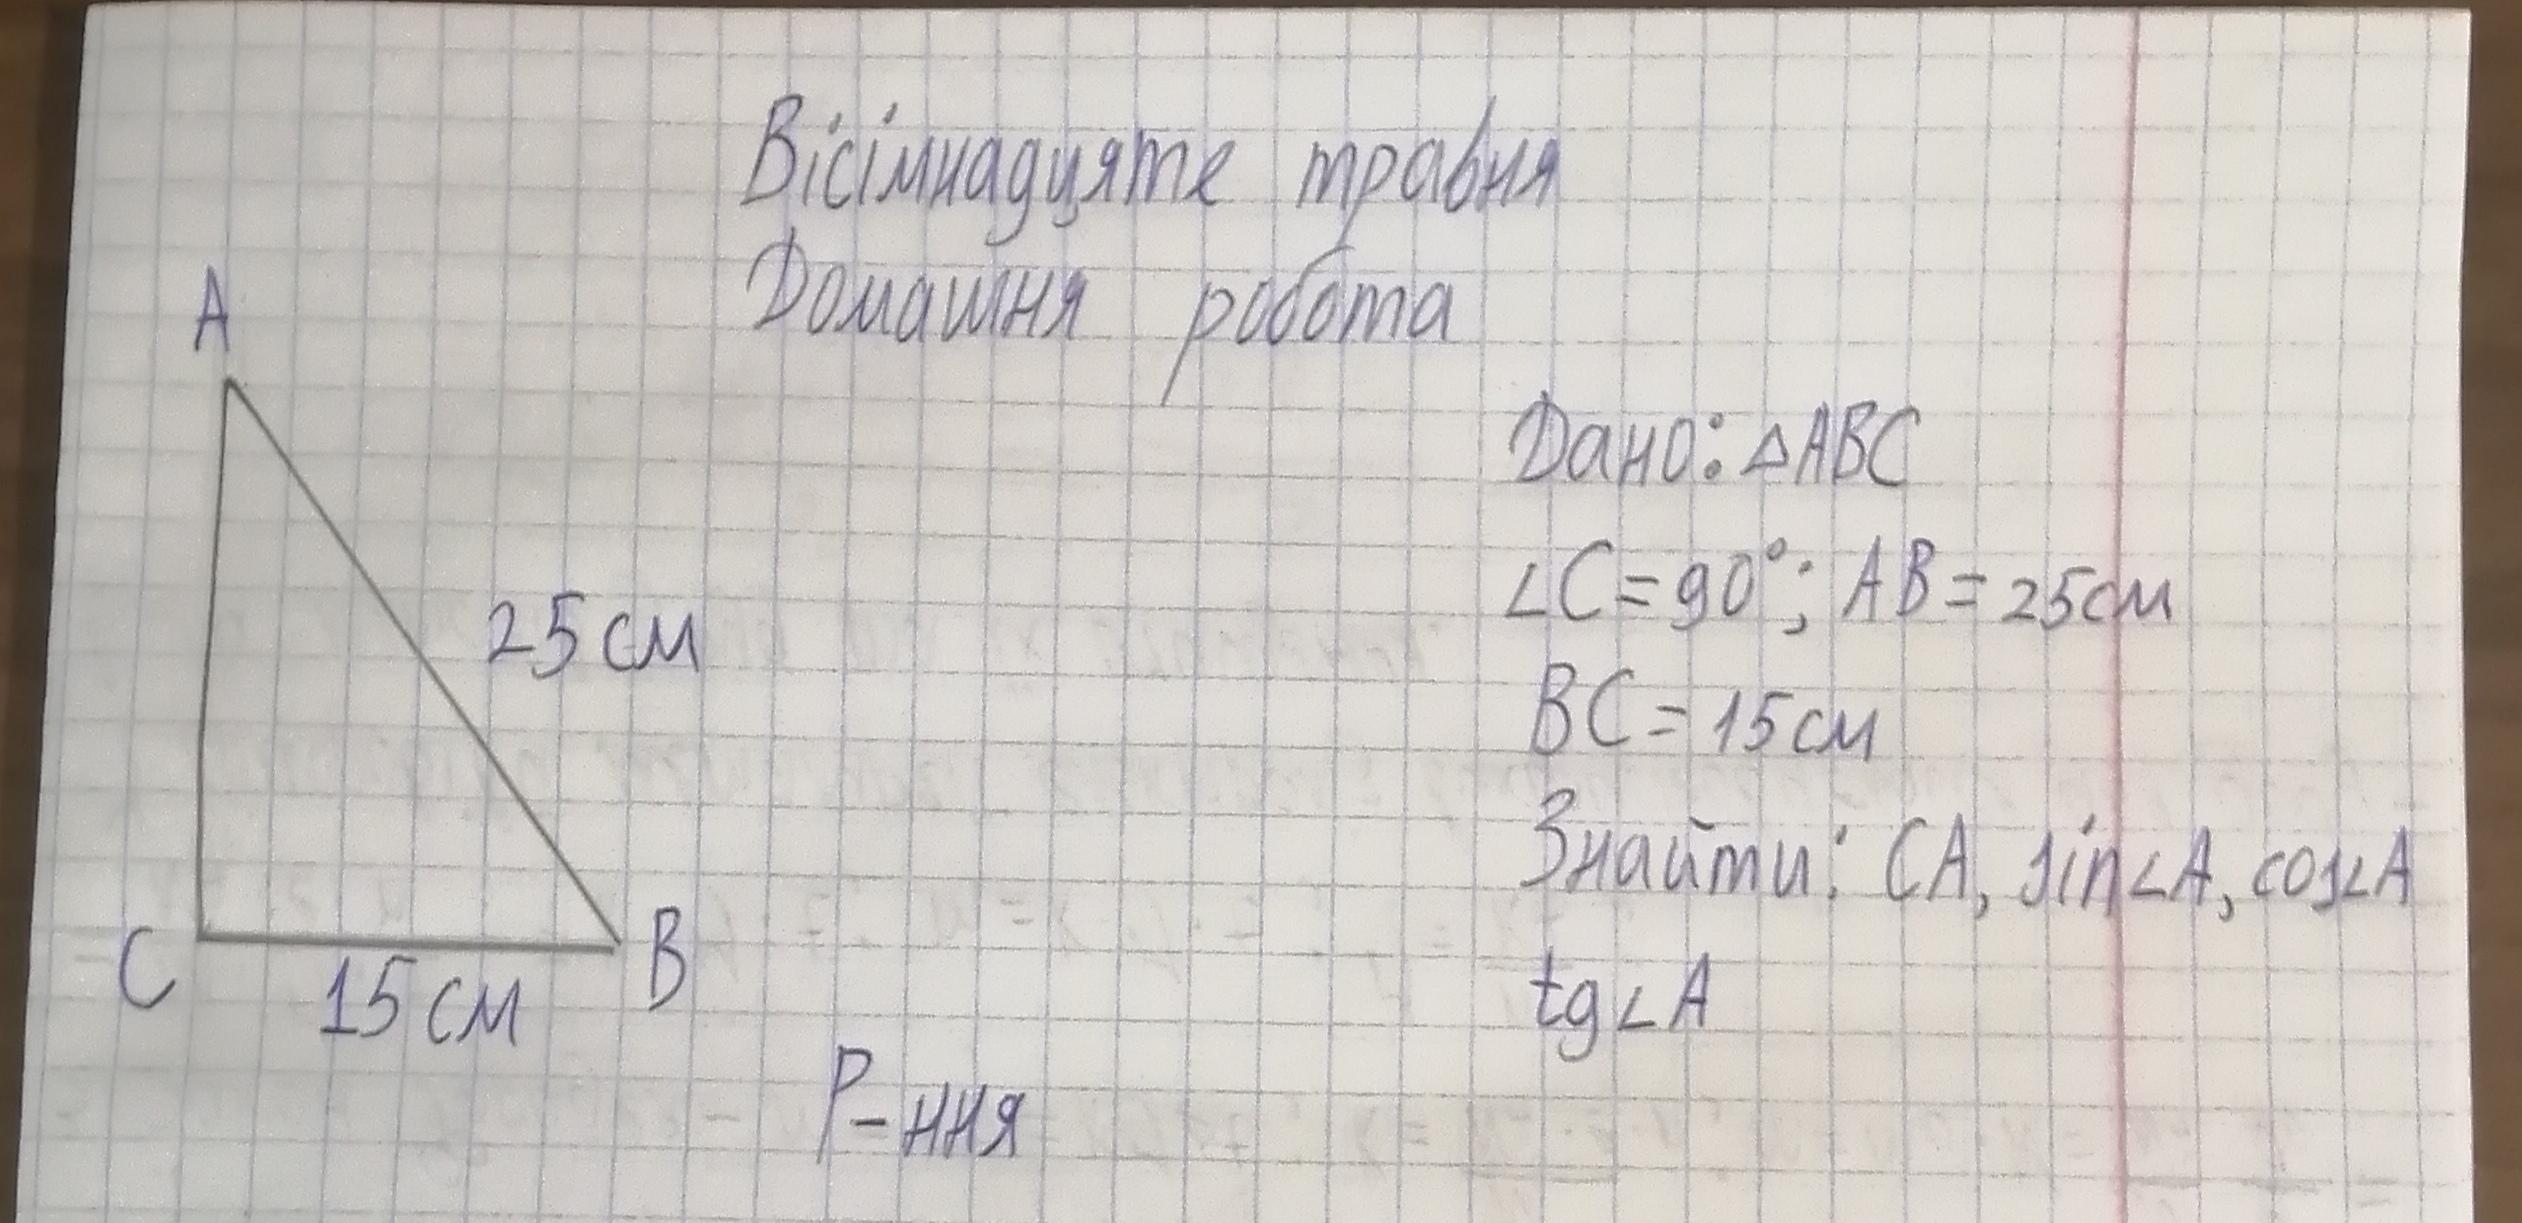 Вісімнадцяте травня
Домашня робота
A
25 см
C
B
15 см
Дано: △ABC
∠C = 90°; AB = 25см
BC = 15см
Знайти: CA, sin∠A, cos∠A
tg∠A
Р-ння